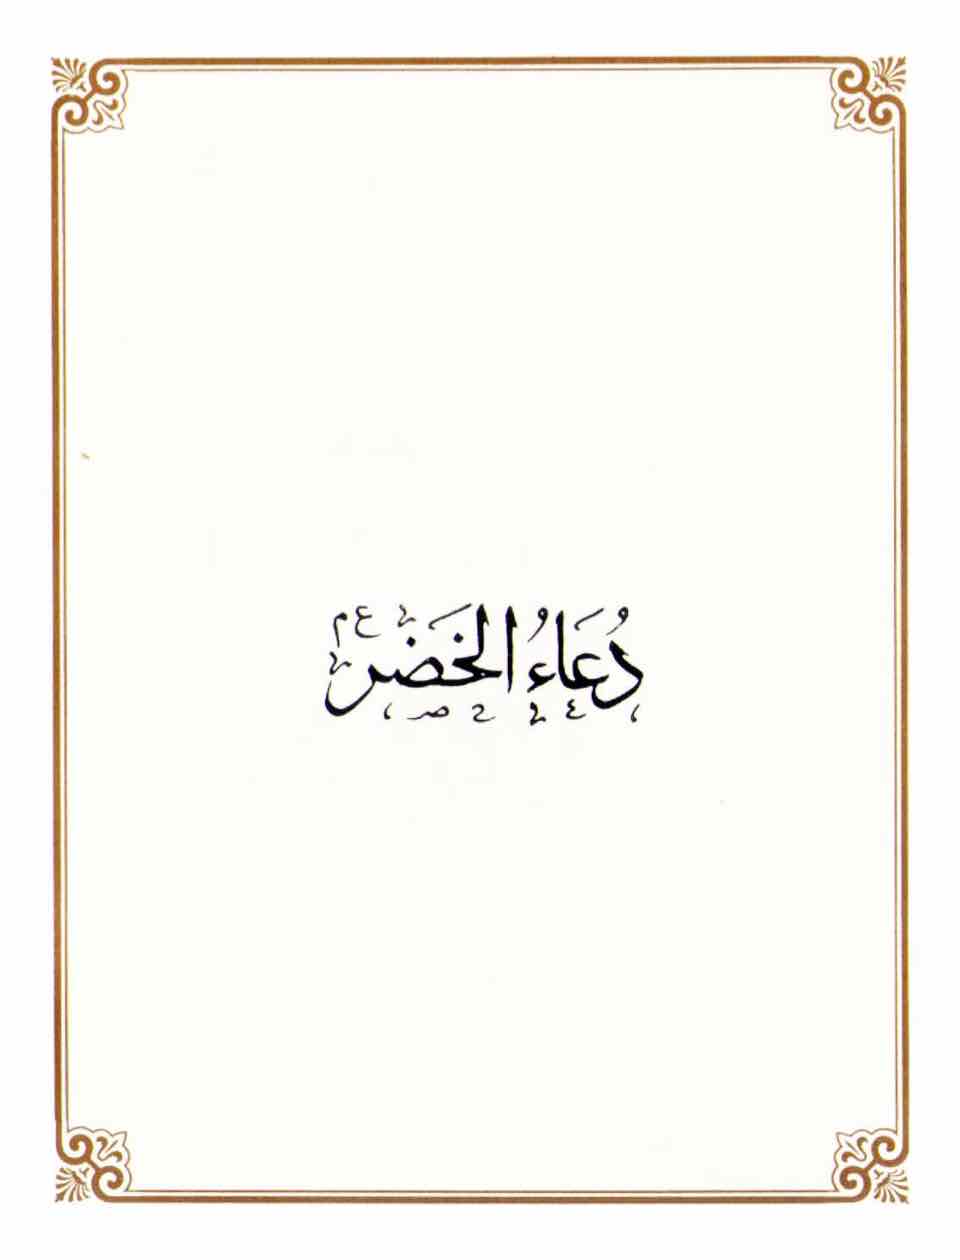 دُعَاءُ الخَضَر ع م